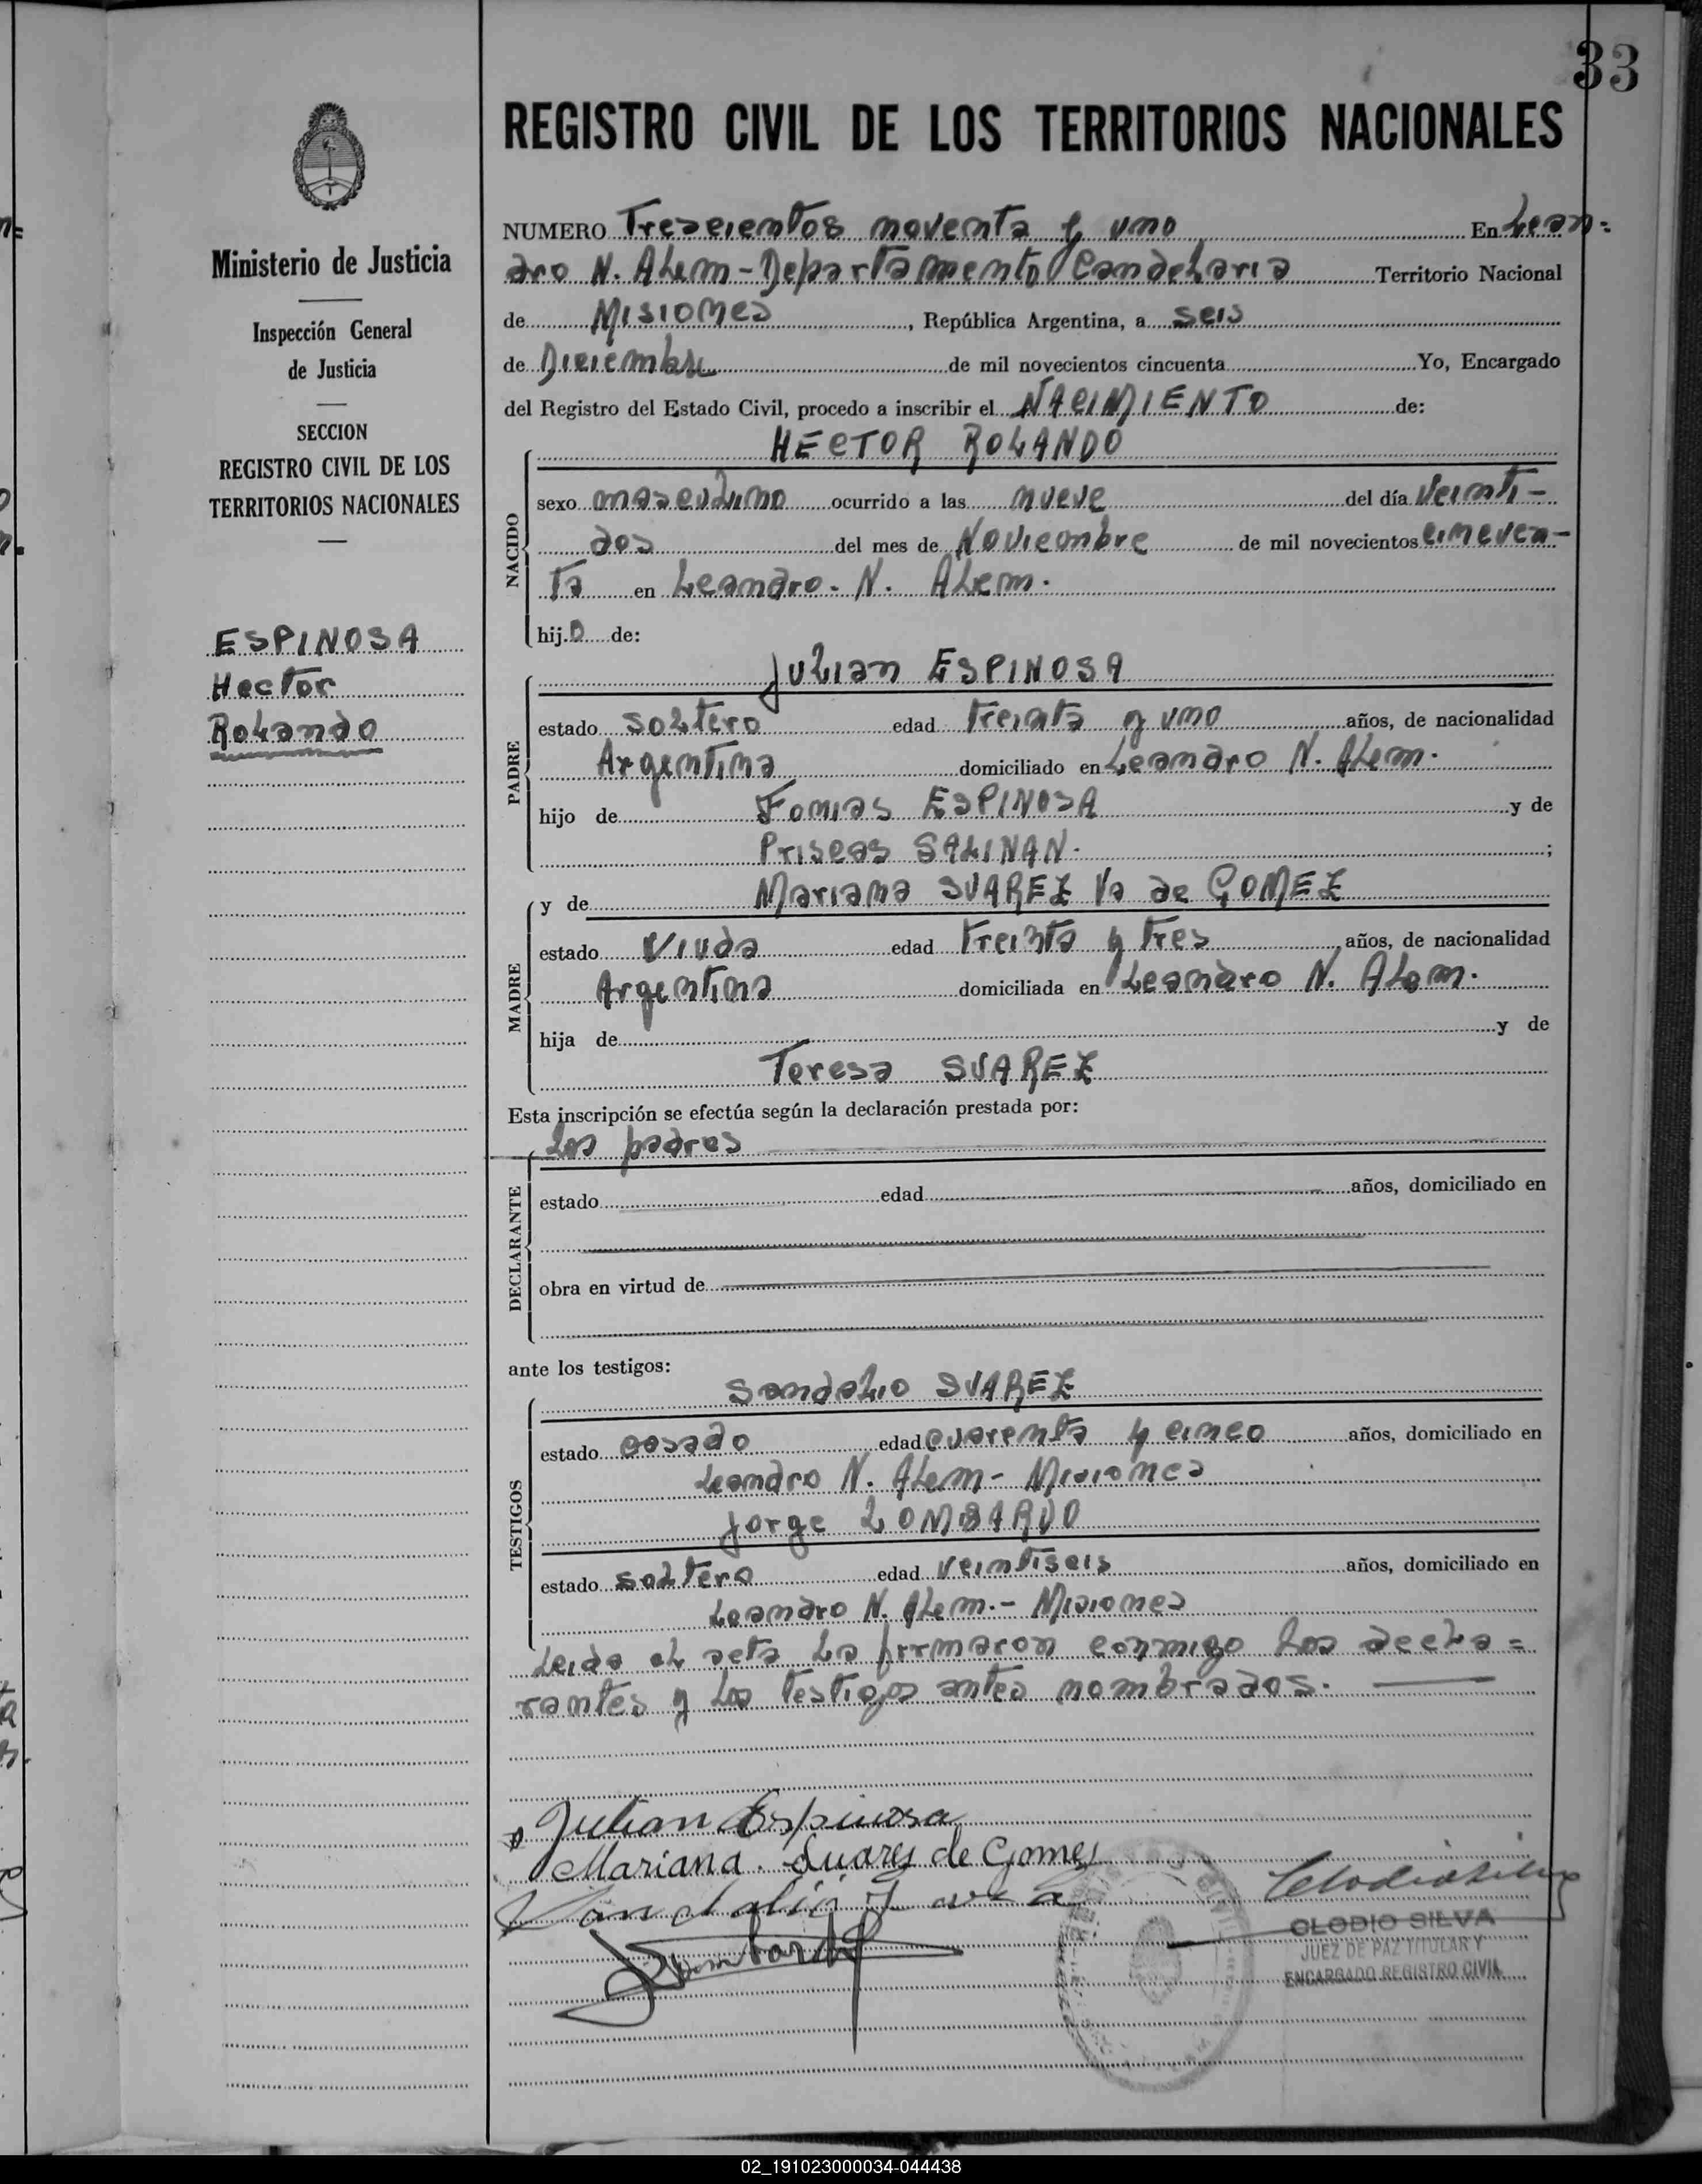 33
REGISTRO CIVIL DE LOS TERRITORIOS NACIONALES
Ministerio de Justicia
Inspección General
de Justicia
SECCION
REGISTRO CIVIL DE LOS
TERRITORIOS NACIONALES
ESPINOSA
Hector
Rolando
NUMERO Trescientos noventa y uno En Lean=
dro N. Alem - Departamento Candelaria Territorio Nacional
de Misiones, República Argentina, a seis
de Diciembre de mil novecientos cincuenta Yo, Encargado
del Registro del Estado Civil, procedo a inscribir el NACIMIENTO de:
HECTOR ROLANDO
NACIDO
sexo masculino ocurrido a las nueve del día Veinti-
dos del mes de Noviembre de mil novecientos cincuen-
ta en Leandro. N. Alem.
hijo de:
PADRE
Julian ESPINOSA
estado soltero edad treinta y uno años, de nacionalidad
Argentina domiciliado en Leandro N. Alem.
hijo de Tomas ESPINOSA y de
Priscas SALINAN. ;
MADRE
y de Mariana SUAREZ Va de GOMEZ
estado Viuda edad treinta y tres años, de nacionalidad
Argentina domiciliada en Leandro N. Alem.
hija de y de
Teresa SUAREZ
Esta inscripción se efectúa según la declaración prestada por:
DECLARANTE
Los padres
estado edad años, domiciliado en
obra en virtud de
ante los testigos:
TESTIGOS
Sandalio SUAREZ
estado casado edad cuarenta y cinco años, domiciliado en
Leandro N. Alem - Misiones
Jorge LOMBARDO
estado soltero edad veintiseis años, domiciliado en
Leandro N. Alem. - Misiones
Leida el acta la firmaron conmigo los decla=
rantes y los testigos antes nombrados.
Julian Espinosa
Mariana. Suares de Gomes
Sandalio
CLODIO SILVA
JUEZ DE PAZ TITULAR Y
ENCARGADO REGISTRO CIVIL
02_191023000034-044438